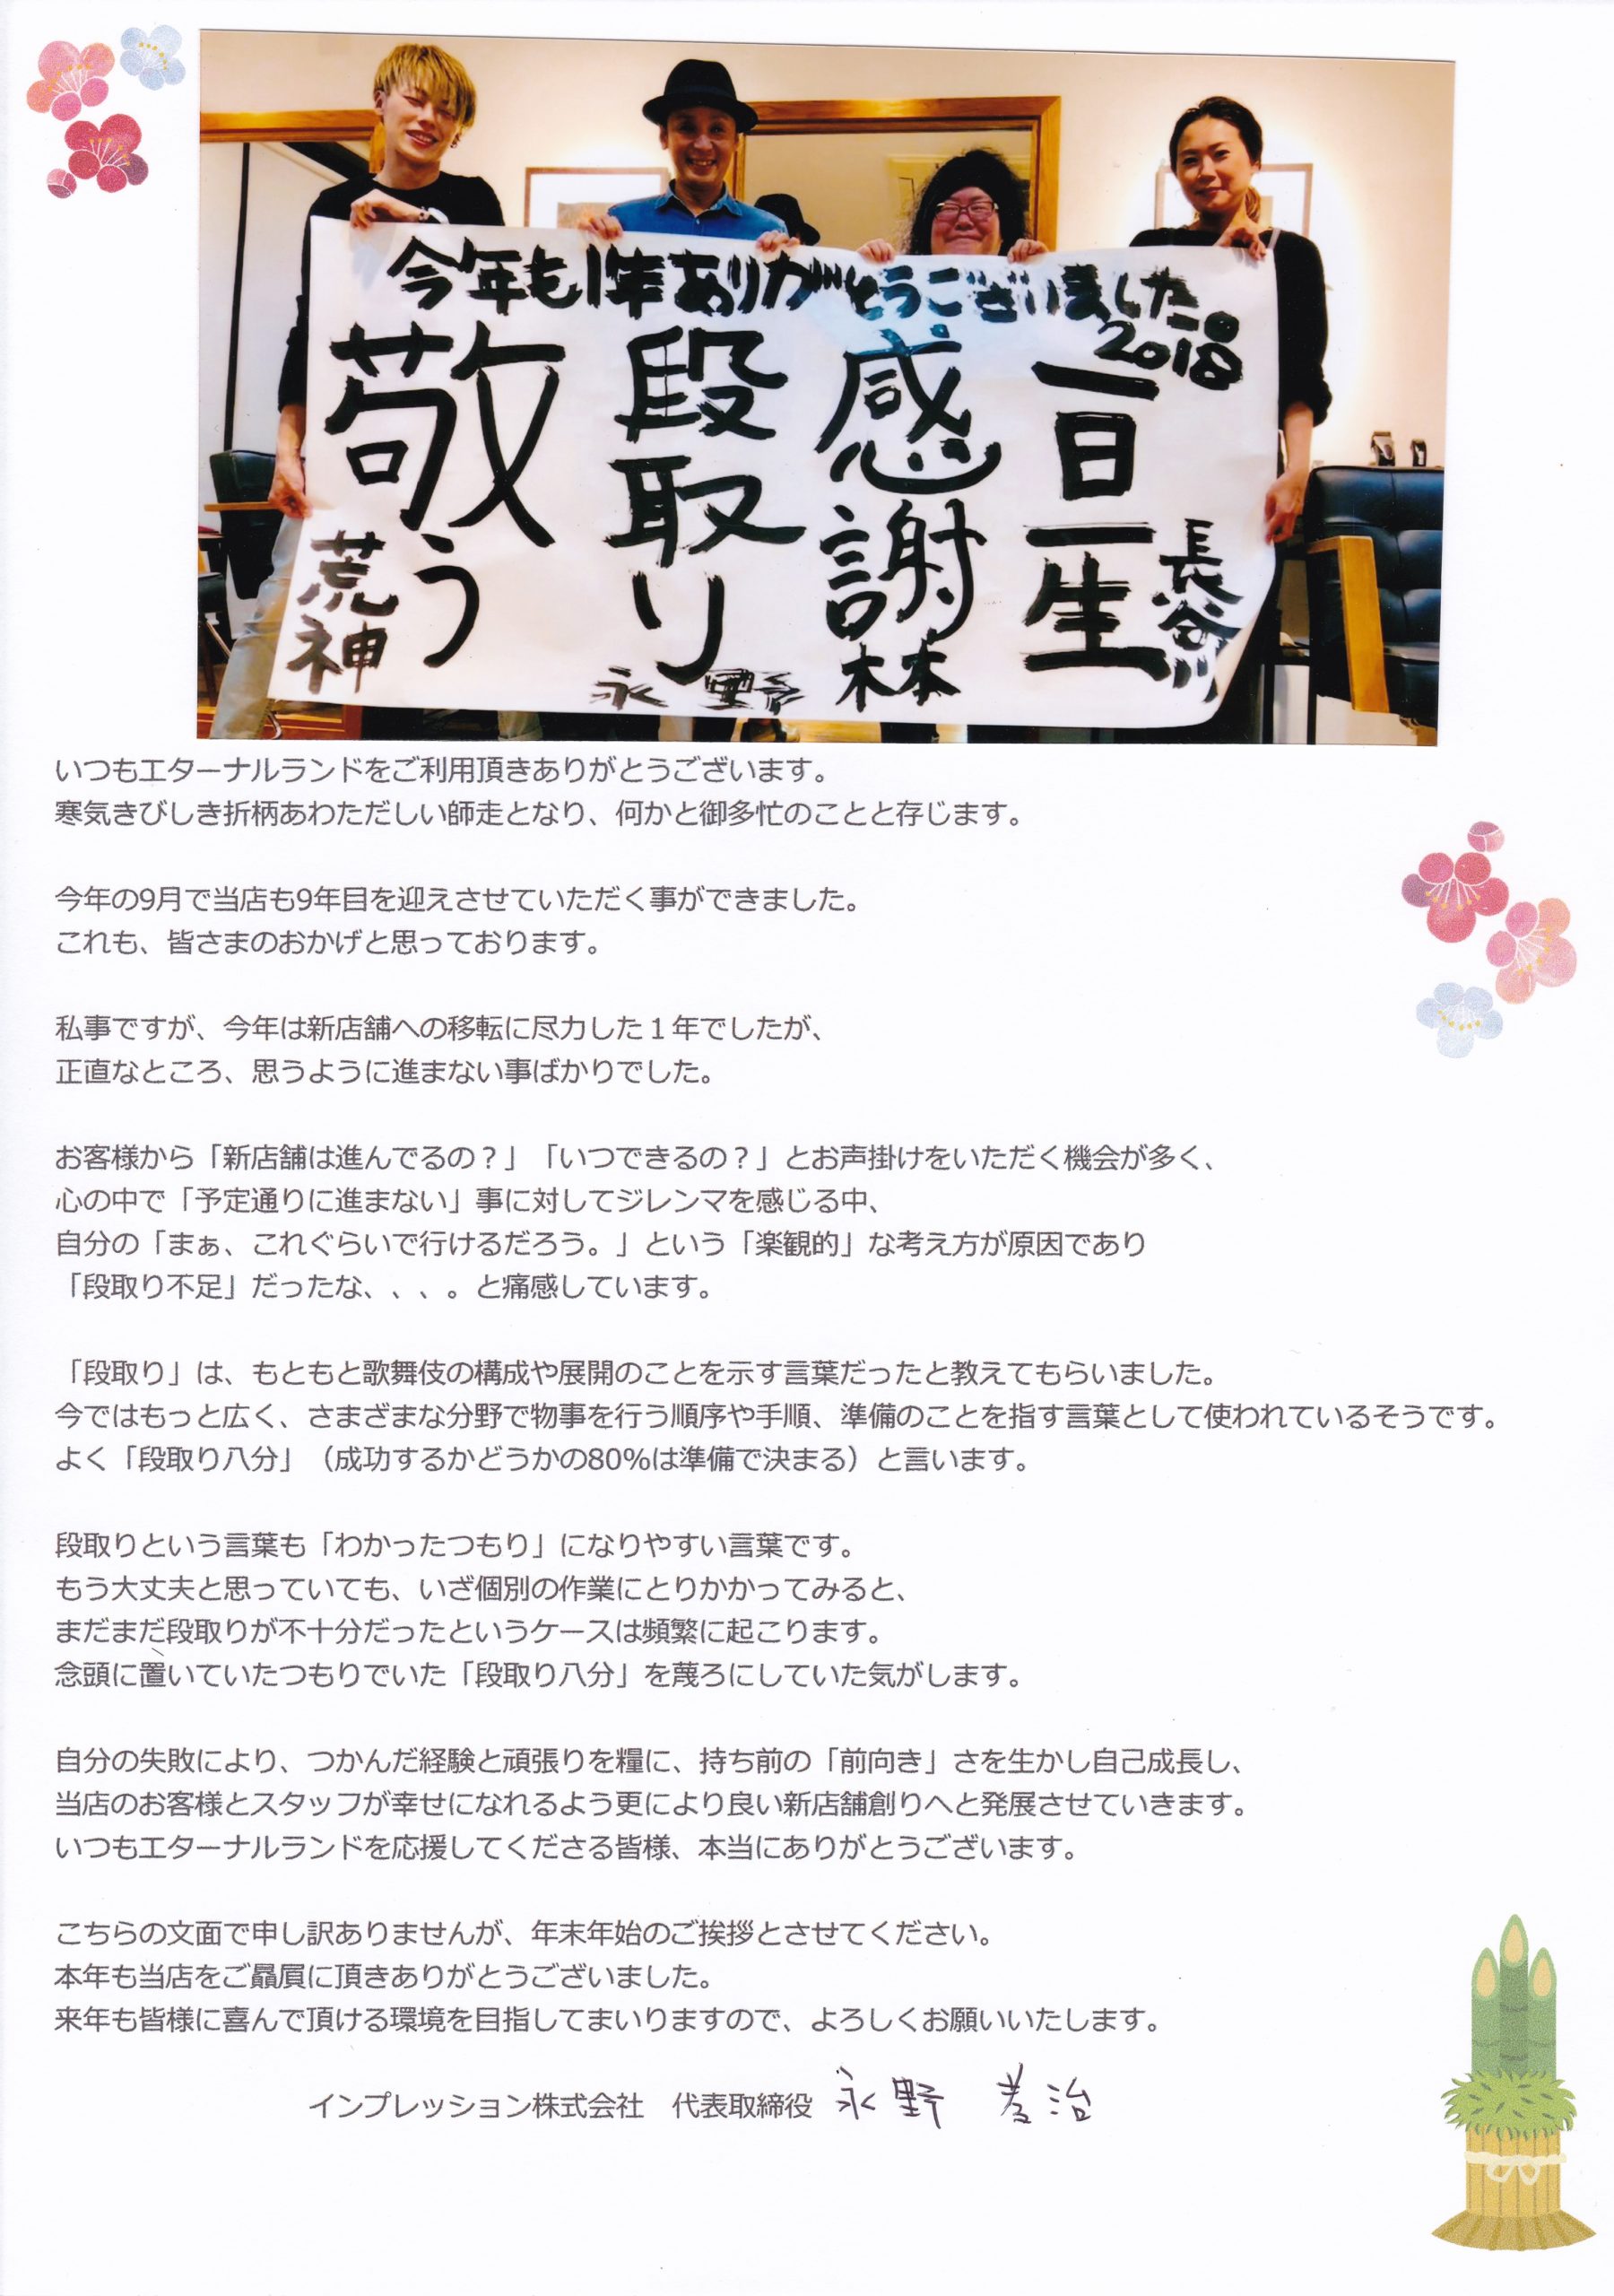 今年も1年ありがとうございました。
2018
敬う
荒神
段取り
永野
感謝
林
一日一生
長谷川
いつもエターナルランドをご利用頂きありがとうございます。
寒気きびしき折柄あわただしい師走となり、何かと御多忙のことと存じます。
今年の9月で当店も9年目を迎えさせていただく事ができました。
これも、皆さまのおかげと思っております。
私事ですが、今年は新店舗への移転に尽力した１年でしたが、
正直なところ、思うように進まない事ばかりでした。
お客様から「新店舗は進んでるの？」「いつできるの？」とお声掛けをいただく機会が多く、
心の中で「予定通りに進まない」事に対してジレンマを感じる中、
自分の「まぁ、これぐらいで行けるだろう。」という「楽観的」な考え方が原因であり
「段取り不足」だったな、、、。と痛感しています。
「段取り」は、もともと歌舞伎の構成や展開のことを示す言葉だったと教えてもらいました。
今ではもっと広く、さまざまな分野で物事を行う順序や手順、準備のことを指す言葉として使われているそうです。
よく「段取り八分」（成功するかどうかの80%は準備で決まる）と言います。
段取りという言葉も「わかったつもり」になりやすい言葉です。
もう大丈夫と思っていても、いざ個別の作業にとりかかってみると、
まだまだ段取りが不十分だったというケースは頻繁に起こります。
念頭に置いていたつもりでいた「段取り八分」を蔑ろにしていた気がします。
自分の失敗により、つかんだ経験と頑張りを糧に、持ち前の「前向き」さを生かし自己成長し、
当店のお客様とスタッフが幸せになれるよう更により良い新店舗創りへと発展させていきます。
いつもエターナルランドを応援してくださる皆様、本当にありがとうございます。
こちらの文面で申し訳ありませんが、年末年始のご挨拶とさせてください。
本年も当店をご贔屓に頂きありがとうございました。
来年も皆様に喜んで頂ける環境を目指してまいりますので、よろしくお願いいたします。
インプレッション株式会社　代表取締役 永野